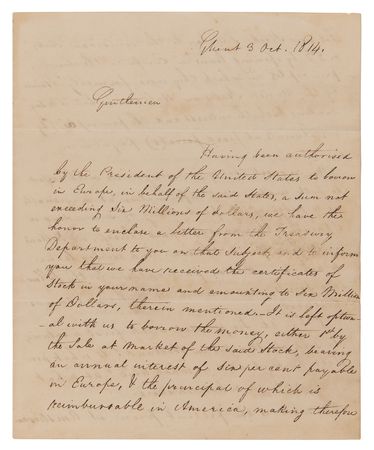 Ghent 3 Oct. 1814.
Gentlemen
Having been authorised
by the President of the United States to borrow
in Europe, in behalf of the said States, a sum not
exceeding Six Millions of dollars, we have the
honor to enclose a letter from the Treasury
Department to you on that Subject, and to inform
you that we have received the certificates of
Stock in your name and amounting to Six Million
of Dollars, therein mentioned – It is left option
-al with us to borrow the money, either 1st by
the Sale at market of the said Stock, bearing
an annual interest of Six per cent payable
in Europe, & the principal of which is
reimbursable in America, making therefore